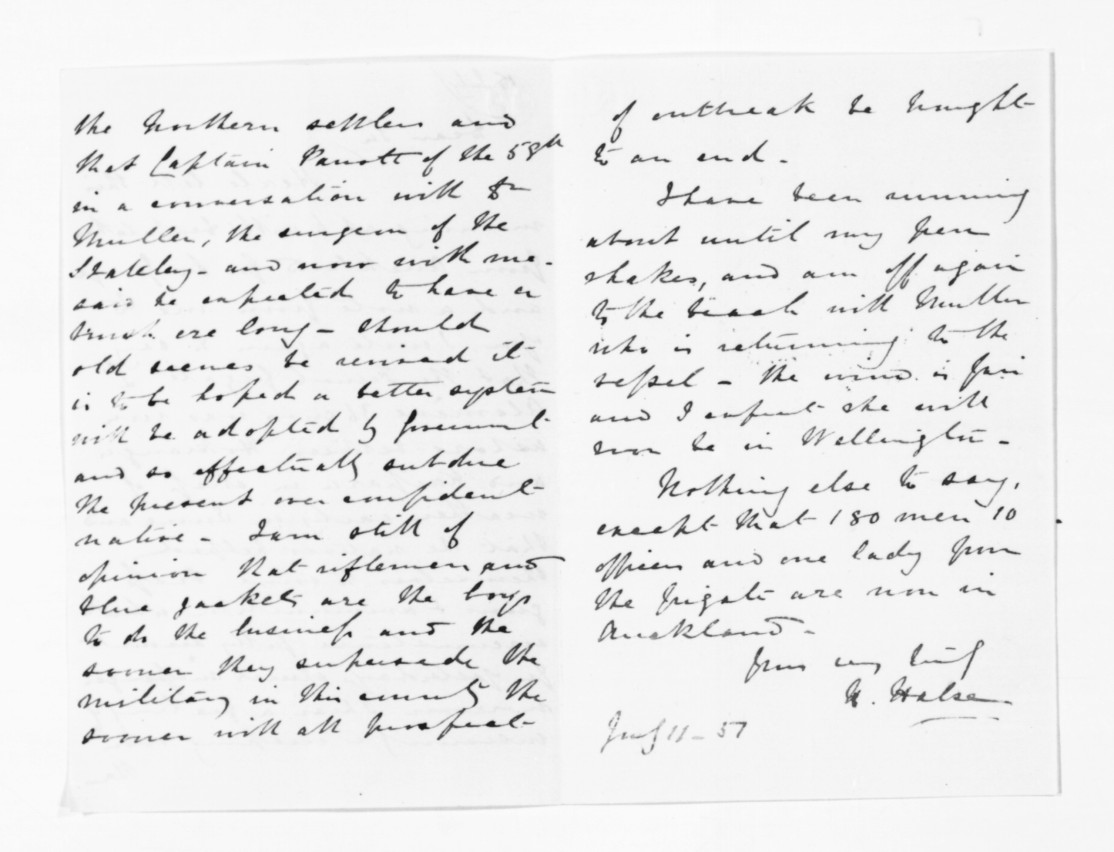 the Northern settlers and
that Captain Parrott of the 58th
in a conversation with Dr
Muller, the surgeon of the
Stateley - and now with me -
said he expected to have a
brush ere long - should
old scenes be revived it
is to be hoped a better system
will be adopted by Government
and so effectually subdue
the present over confident
native - I am still of
opinion that riflemen and
blue jackets are the boys
to do the business and the
sooner they supersede the
military in this country the
sooner will all prospect
of outbreak be brought
to an end -
I have been running
about until my pen
shakes, and am off again
to the beach with Muller
who is returning to the
vessel - the wind is fair
and I expect she will
soon be in Wellington -
Nothing else to say,
except that 180 men 10
officers and one lady from
the frigate are now in
Auckland -
Yours very truly
H. Halse
July 11 - 57